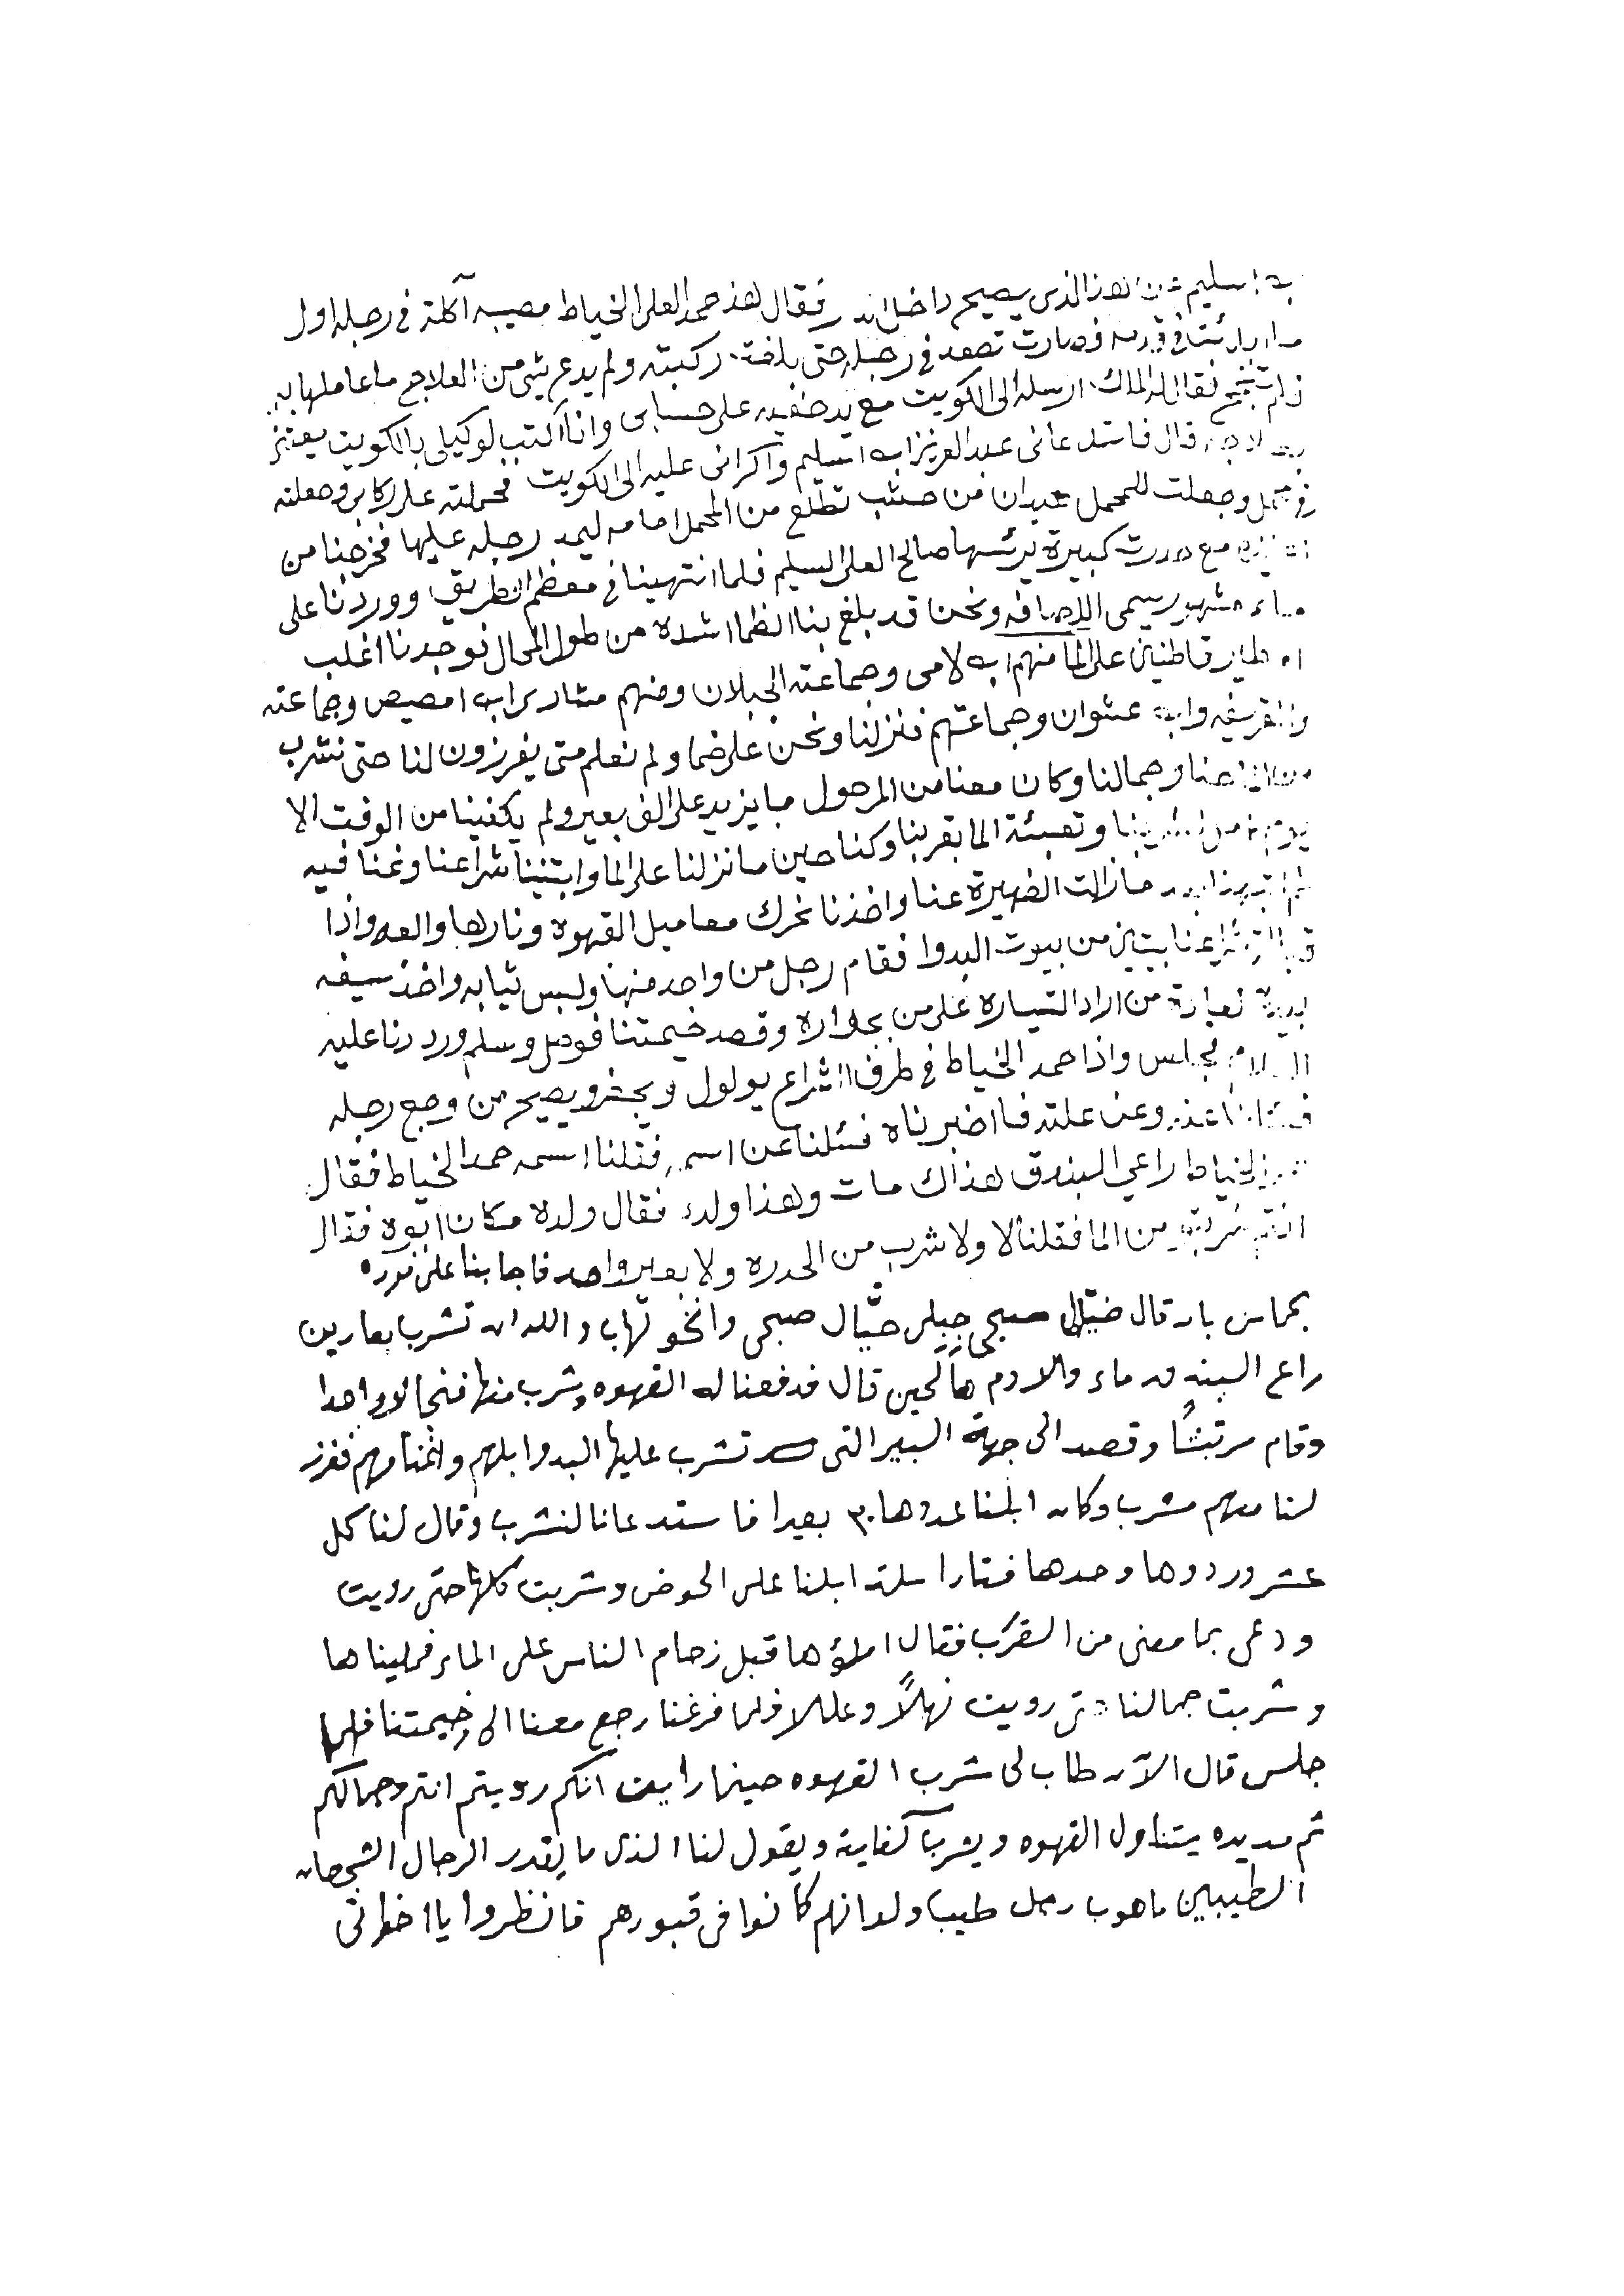 اسليم عن هذا الذي يصيح داخل فقال هذ حمد العلي الخياط مصيبه آكلة في رجله اول
ما بدئت في قدمه وصارت تصعد في رجله حتى بلغت ركبته ولم يدع شي من العلاج ما عاملها به
فلم تنجح فقال له الملك ارسله الى الكويت مع على حسابي وانا اكتب لوكيلي بالكويت يعتني
قال فاستدعاني عبدالعزيز ابن اسليم واكراني عليه الى الكويت فحملته على ركابي وجعلته
في محمل وجعلت للمحمل عيدان من خشب تطلع من المحمل امامه ليمد رجله عليها فخرجنا من
مع حدرت كبيرة يرئسها صالح العلي السليم فلما انتهينا في معظم الطريق ووردنا على
ماء مشهور يسمى اللصافه ونحن قد بلغ بنا الظما اشده من طول المحال فوجدنا اغلب
امطير قاطنين على الما منهم ابن لامي وجماعته الجبلان ومنهم مشاري ابن امصيص وجماعته
وابن عشوان وجماعتهم فنزلنا ونحن على ضما ولم نعلم متى يفرزون لنا حتى نشرب
وجمالنا وكان معنا من المرحول ما يزيد على الف بعير ولم يكفينا من الوقت الا
يوم وتعبئة الما بقربنا وكنا حين ما نزلنا على الما وابتنينا شراعنا ونمنا فيه
زالت الضهيرة عنا واخذنا نحرك معاميل القهوه ونارها والعه واذا
شراعنا بيتين من بيوت البدوا فقام رجل من واحد منها ولبس ثيابه واخذ سيفه
من اراد السيارة على من بجواره وقصد خيمتنا فوصل وسلم ورددنا عليه
السلام فجلس واذا حمد الخياط في طرف الشراع يولول ويصيح من وجع رجله
وعن علته فاخبرناه فسئلنا عن اسمه فقلنا اسمه حمد الخياط فقال
الخياط راعي البندق هذاك مات وهذا ولده فقال ولده مكان ابوه فقال
انتم شربتم من الما فقلنا لا ولا شرب من الحدره ولا بعير واحد فاجابنا على فوره
بحماس بان قال خيّال صبحى جبلي خيّال صبحى وانخو تهاب والله ان تشرب بعارين
راع البندق ماء والا دم هالحين قال فدفعنا له القهوه وشرب منها فنجالا واحدا
وقام مرتبشًا وقصد الى جهة البير التي تشرب عليها البدوا ابلهم واغنامهم ففرز
لنا معهم مشرب وكان ابلنا عددها ٣٠ بعيرا فاستدعانا لنشرب وقال لنا كل
عشر وردوها وحدها فتاراسلت ابلنا على الحوض وشربت كلها حتى رويت
ودعى بما معنى من القرب فقال املؤها قبل زحام الناس على الماء فملیناها
وشربت جمالنا حتى رويت نهلاً وعللا فلما فرغنا رجع معنا الى خيمتنا فلما
جلس قال الآن طاب لي شرب القهوه حينما رايت انكم رويتم انتم وجمالكم
ثم مد يده يتناول القهوه ويشرب كفايته ويقول لنا الذي ما يقدر الرجال الشجعان
الطيبين ماهوب رجل طيب ولو انهم كانوا في قبورهم فانظروا يا اخواني